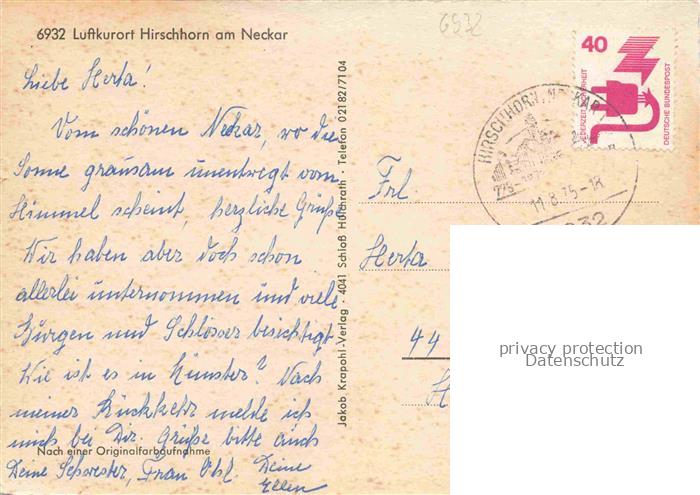 6932 Luftkurort Hirschhorn am Neckar
6932
Liebe Herta!
Vom schönen Neckar, wo die
Sonne grausam unentwegt vom
Himmel scheint, herzliche Grüße
Wir haben aber doch schon
allerlei unternommen und viele
Burgen und Schlösser besichtigt
Wie ist es in Münster? Nach
meiner Rückkehr melde ich
mich bei Dir. Grüße bitte auch
Deine Schwester, Frau
Deine
Ellen
Nach einer Originalfarbaufnahme
Jakob Krapohl-Verlag · 4041 Schloß Hülchrath · Telefon 02182/7104
40
JEDERZEIT SICHERHEIT
DEUTSCHE BUNDESPOST
HIRSCHHORN, NECKAR
11.8.75-18
6932
Frl.
Herta
44
privacy protection
Datenschutz